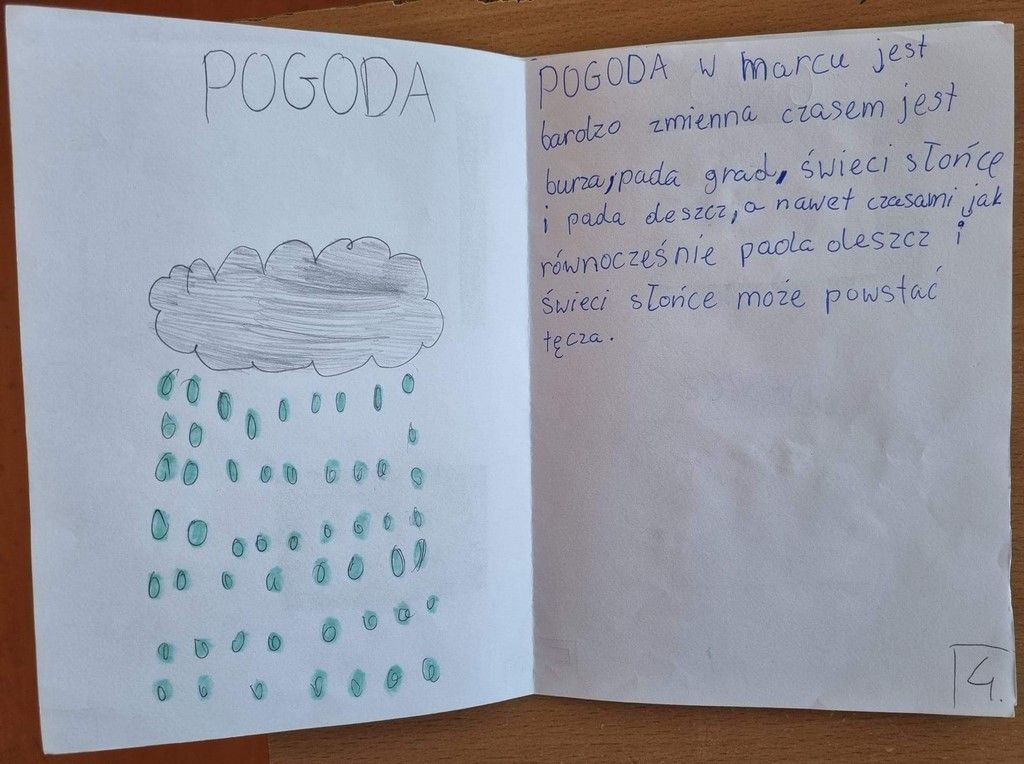 POGODA
POGODA w marcu jest
bardzo zmienna czasem jest
burza, pada grad, świeci słońcę
i pada deszcz, a nawet czasami jak
równocześnie pada deszcz i
świeci słońce może powstać
tęcza.
4.